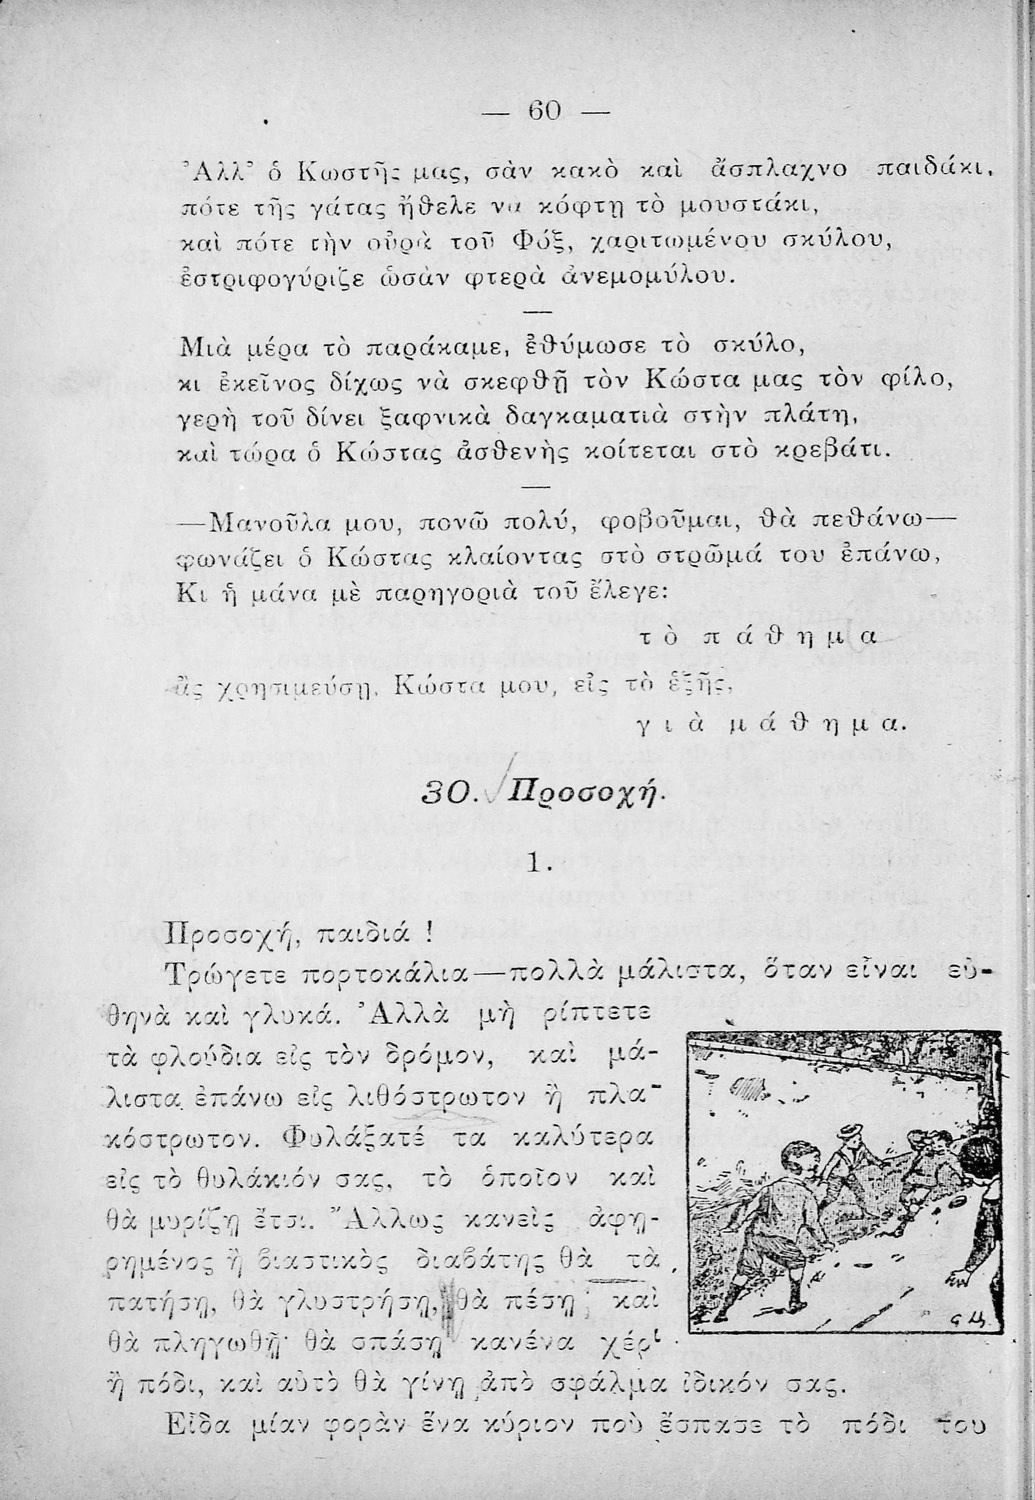 — 60 —
Ἀλλ' ὁ Κωστῆς μας, σὰν κακὸ καὶ ἄσπλαχνο παιδάκι,
πότε τῆς γάτας ἤθελε να κόφτῃ τὸ μουστάκι,
καὶ πότε τὴν οὐρὰ τοῦ Φόξ, χαριτωμένου σκύλου,
ἐστριφογύριζε ὡσὰν φτερὰ ἀνεμομύλου.
—
Μιὰ μέρα τὸ παράκαμε, ἐθύμωσε τὸ σκύλο,
κι ἐκεῖνος δίχως νὰ σκεφθῇ τὸν Κώστα μας τὸν φίλο,
γερὴ τοῦ δίνει ξαφνικὰ δαγκαματιὰ στὴν πλάτη,
καὶ τώρα ὁ Κώστας ἀσθενὴς κοίτεται στὸ κρεβάτι.
—
—Μανοῦλα μου, πονῶ πολύ, φοβοῦμαι, θὰ πεθάνω—
φωνάζει ὁ Κώστας κλαίοντας στὸ στρῶμά του ἐπάνω,
Κι ἡ μάνα μὲ παρηγοριὰ τοῦ ἔλεγε:
τὸ πάθημα
ἂς χρησιμεύσῃ, Κώστα μου, εἰς τὸ ἑξῆς,
γιὰ μάθημα.
30. Προσοχή.
1.
Προσοχή, παιδιά !
Τρώγετε πορτοκάλια—πολλὰ μάλιστα, ὅταν εἶναι εὐ-
θηνὰ καὶ γλυκά. Ἀλλὰ μὴ ρίπτετε
τὰ φλούδια εἰς τὸν δρόμον, καὶ μά-
λιστα ἐπάνω εἰς λιθόστρωτον ἢ πλα-
κόστρωτον. Φυλάξατέ τα καλύτερα
εἰς τὸ θυλάκιόν σας, τὸ ὁποῖον καὶ
θὰ μυρίζῃ ἔτσι. Ἄλλως κανεὶς ἀφῃ-
ρημένος ἢ βιαστικὸς διαβάτης θὰ τὰ
πατήσῃ, θὰ γλυστρήσῃ, θὰ πέσῃ καὶ
θὰ πληγωθῇ· θὰ σπάσῃ κανένα χέρι
ἢ πόδι, καὶ αὐτὸ θὰ γίνῃ ἀπὸ σφάλμα ἰδικόν σας.
Εἶδα μίαν φορὰν ἕνα κύριον ποὺ ἔσπασε τὸ πόδι του